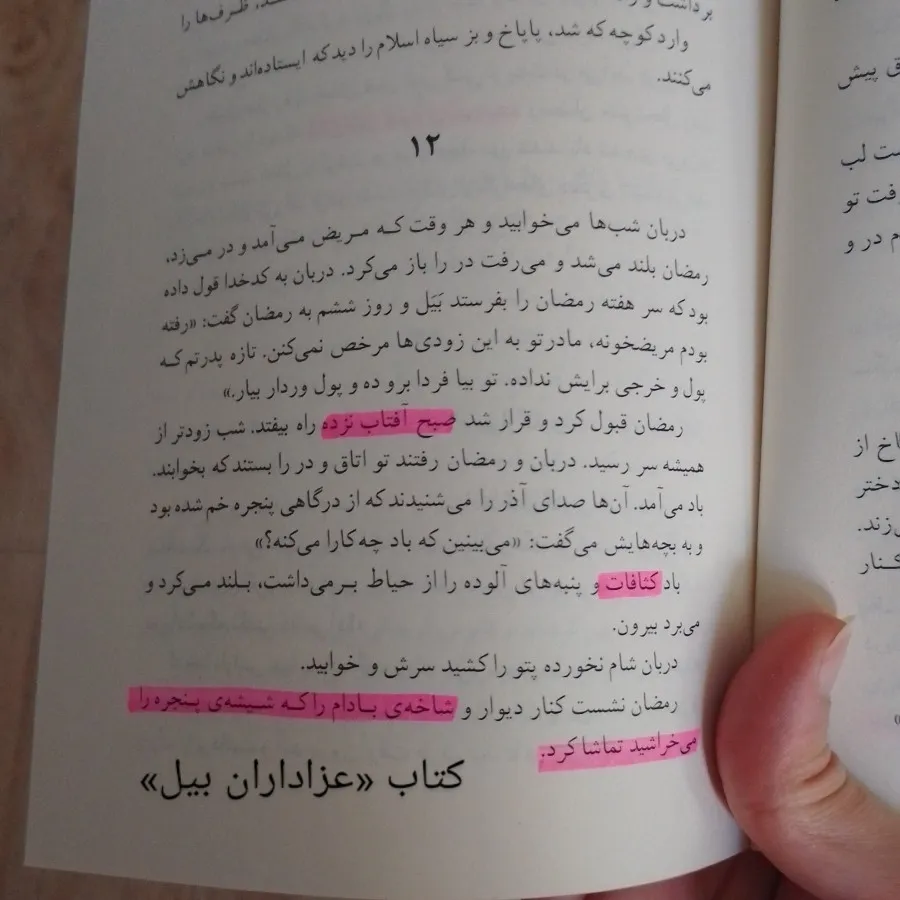 برداشت و
ظرف‌ها را
وارد کوچه که شد، پاپاخ و بز سیاه اسلام را دید که ایستاده‌اند و نگاهش
می‌کنند.
۱۲
دربان شب‌ها می‌خوابید و هر وقت که مریض می‌آمد و در می‌زد،
رمضان بلند می‌شد و می‌رفت در را باز می‌کرد. دربان به کدخدا قول داده
بود که سر هفته رمضان را بفرستد بَیَل و روز ششم به رمضان گفت: «رفته
بودم مریضخونه، مادرتو به این زودی‌ها مرخص نمی‌کنن. تازه پدرتم که
پول و خرجی برایش نداده. تو بیا فردا برو ده و پول وردار بیار.»
رمضان قبول کرد و قرار شد صبح آفتاب نزده راه بیفتد. شب زودتر از
همیشه سر رسید. دربان و رمضان رفتند تو اتاق و در را بستند که بخوابند.
باد می‌آمد. آن‌ها صدای آذر را می‌شنیدند که از درگاهی پنجره خم شده بود
و به بچه‌هایش می‌گفت: «می‌بینین که باد چه کارا می‌کنه؟»
باد کثافات و پنبه‌های آلوده را از حیاط برمی‌داشت، بلند می‌کرد و
می‌برد بیرون.
دربان شام نخورده پتو را کشید سرش و خوابید.
رمضان نشست کنار دیوار و شاخه‌ی بادام را که شیشه‌ی پنجره را
می‌خراشید تماشا کرد.
کتاب «عزاداران بیل»
ق پیش
ست لب
رفت تو
م در و
اخ از
دختر
می‌زند.
کنار